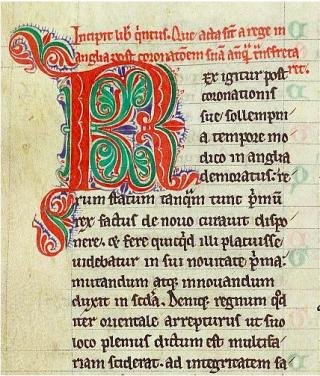 Incipit lib' quintus. Que acta sunt a rege in
anglia post coronatõem suã
rex igitur post
coronationis
sue sollempni
a tempore mo
dico in anglia
demoratus: re
rum statum tanq̃m tunc p'mũ
rex factus de nouo curauit dispo
nere. & fere quicq̃d illi placuisse
uidebatur in sui nouitate p'ma:
mutandum atq; innouandum
duxit in scd̃a. Deniq; regnum q̃d
iter orientale arrepturus ut suo
loco plenius dictum est multifa
riam sciderat. ad integritatem sa